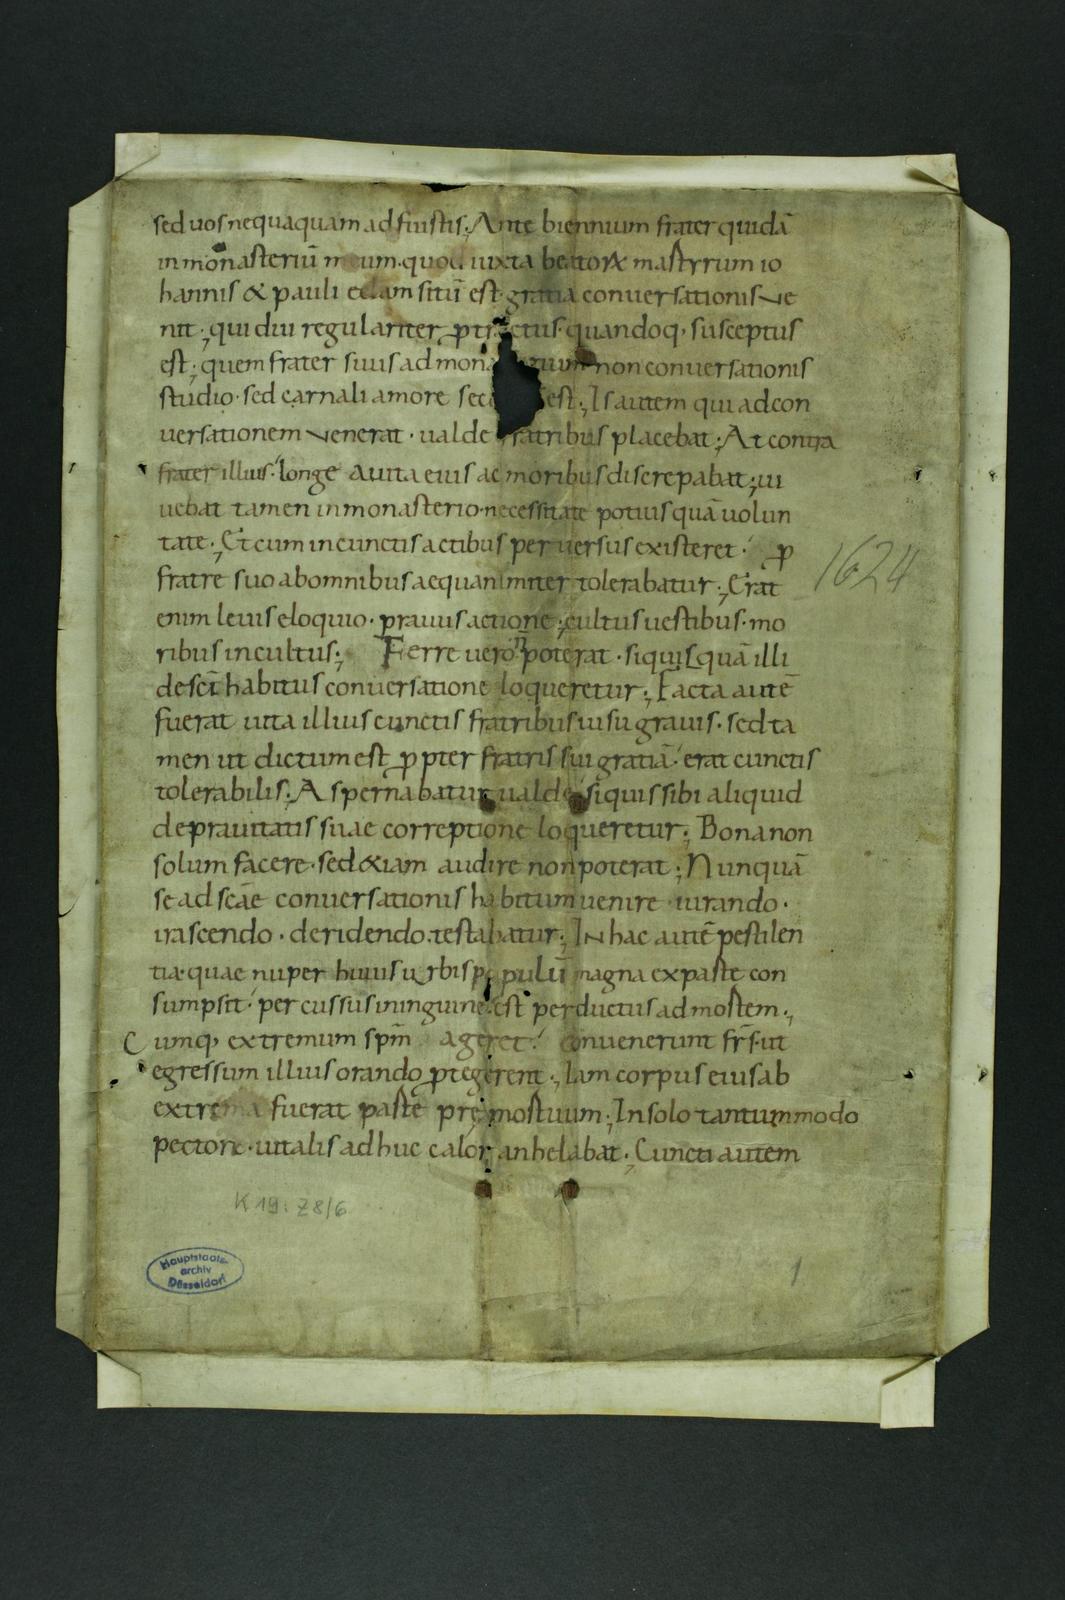 sed uos nequaquam adfuistis; Ante biennium frater quidā
in monasteriū meum· quod iuxta beatorꝝ martyrum io
hannis & pauli eclam sitū est· gratia conuersationis ue
nit; qui diu regulariter ꝓtractus· quandoq; susceptus
est; quem frater suus ad mona um non conuersationis
studio· sed carnali amore sec est; Is autem qui ad con
uersationem uenerat· ualde fratribus placebat; At contra
frater illius· longe a uita eius ac moribus discrepabat; ui
uebat tamen in monasterio· necessitate potius quā uolun
tate; Et cum in cunctis actibus peruersus existeret· ꝓ
fratre suo ab omnibus aequanimiter tolerabatur; Erat
enim leuis eloquio· prauus actione; cultus uestibus· mo
ribus incultus; Ferre uero n̄ poterat· si quisquā illi
de sc̄i habitus conuersatione loqueretur; Facta autē
fuerat uita illius cunctis fratribus uisu grauis· sed ta
men ut dictum est ꝓpter fratris sui gratiā· erat cunctis
tolerabilis; Aspernabatur ualde· si quis sibi aliquid
de prauitatis suae correptione loqueretur; Bona non
solum facere· sed &iam audire non poterat; Nunquā
se ad scāe conuersationis habitum uenire· iurando·
irascendo· deridendo· testabatur; In hac autē pestilen
tia· quae nuper huius urbis populū magna ex parte con
sumpsit· percussus in inguine· est perductus ad mortem;
Cumq; extremum spm̄ ageret· conuenerunt fr̄s· ut
egressum illius orando ꝓtegerent; Iam corpus eius ab
extrema fuerat parte premortuum; In solo tantummodo
pectore· uitalis adhuc calor anhelabat; Cuncti autem
1624
K 19: Z8/6
Hauptstaats-
archiv
Düsseldorf
1